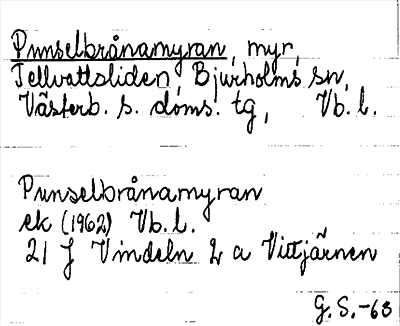 Punselbrånamyran, myr,
Tellvattsliden, Bjurholms sn,
Västerb. s. doms. tg, Vb. l.
Punselbrånamyran
ek (1962) Vb. l.
21 J Vindeln 2 a Vittjärnen
G. S. -63